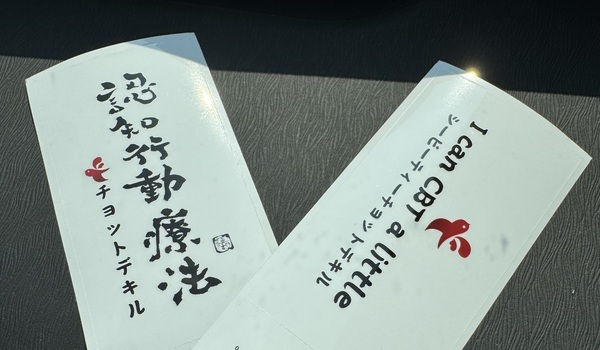 認知行動療法
チョットデキル
I can CBT a little
シービーティーチョットデキル